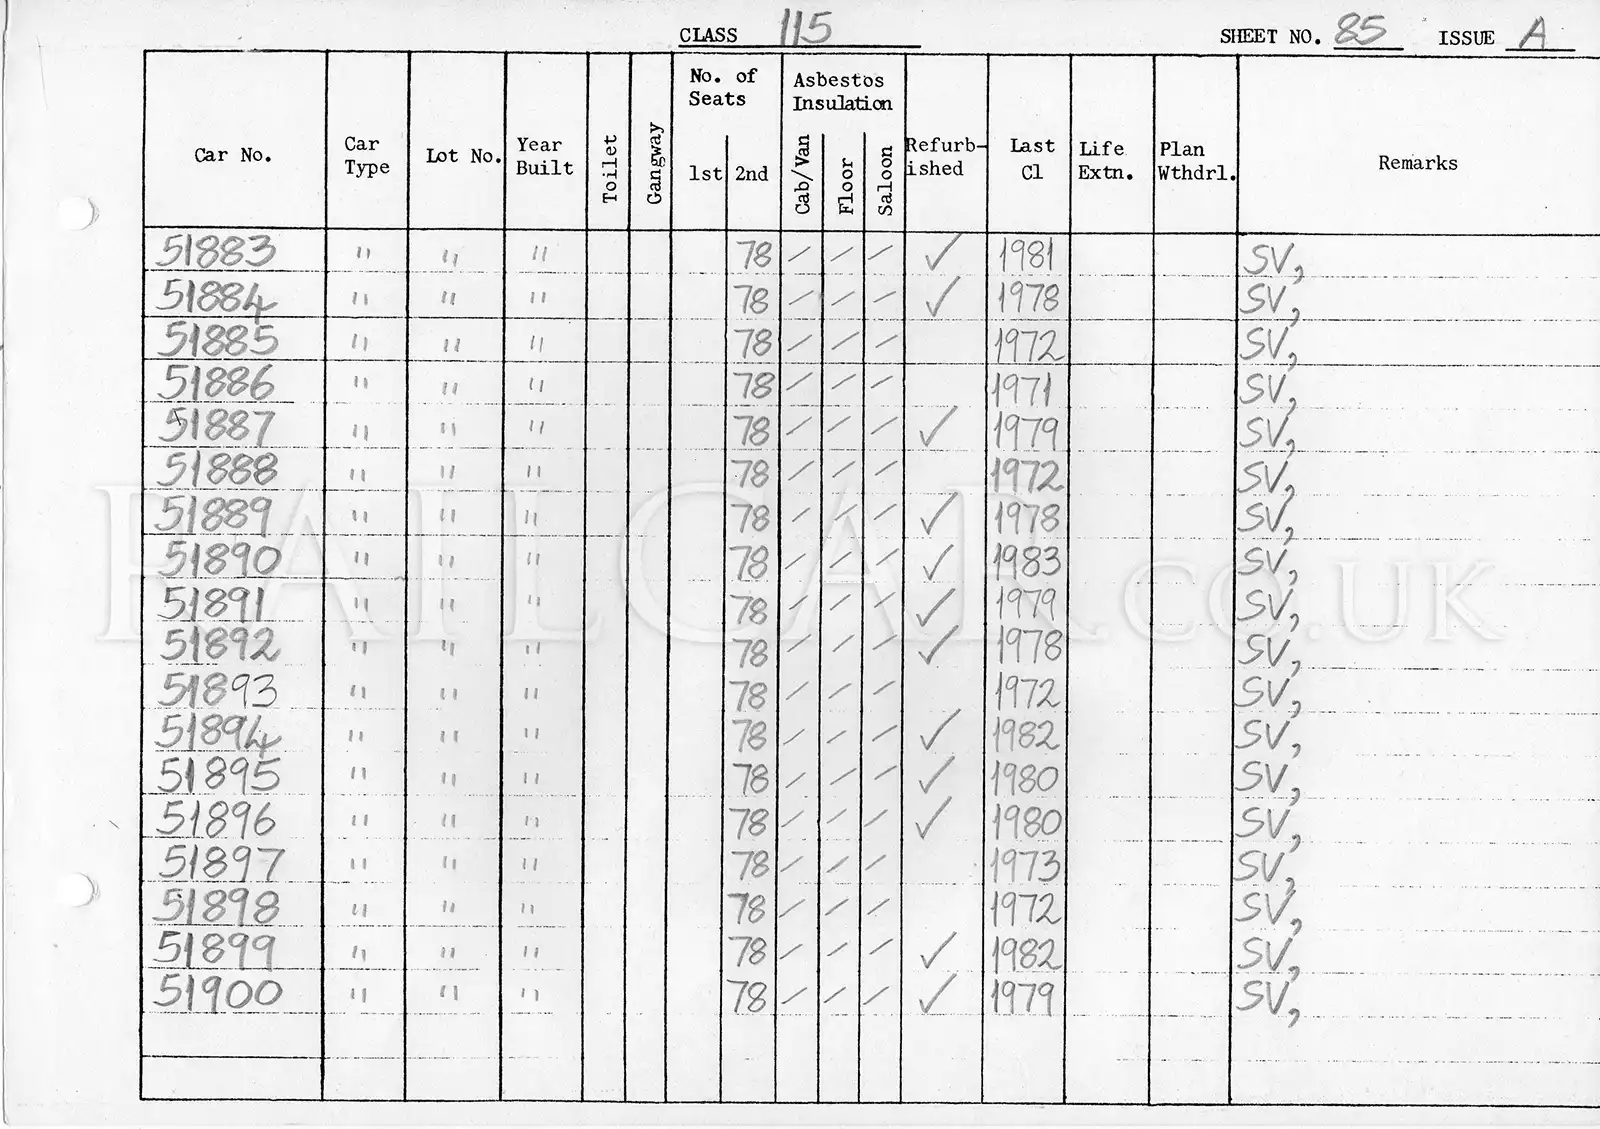 CLASS 115 SHEET NO. 85 ISSUE A
Car No. Car Type Lot No. Year Built Toilet Gangway No. of Seats 1st 2nd Asbestos Insulation Cab/Van Floor Saloon Refurb-ished Last Cl Life Extn. Plan Wthdrl. Remarks
51883 " " " 78 / / / ✓ 1981 SV,
51884 " " " 78 / / / ✓ 1978 SV,
51885 " " " 78 / / / 1972 SV,
51886 " " " 78 / / / 1971 SV,
51887 " " " 78 / / / ✓ 1979 SV,
51888 " " " 78 / / / 1972 SV,
51889 " " " 78 / / / ✓ 1978 SV,
51890 " " " 78 / / / ✓ 1983 SV,
51891 " " " 78 / / / ✓ 1979 SV,
51892 " " " 78 / / / ✓ 1978 SV,
51893 " " " 78 / / / 1972 SV,
51894 " " " 78 / / / ✓ 1982 SV,
51895 " " " 78 / / / ✓ 1980 SV,
51896 " " " 78 / / / ✓ 1980 SV,
51897 " " " 78 / / / 1973 SV,
51898 " " " 78 / / / 1972 SV,
51899 " " " 78 / / / ✓ 1982 SV,
51900 " " " 78 / / / ✓ 1979 SV,
RAILCAR.CO.UK